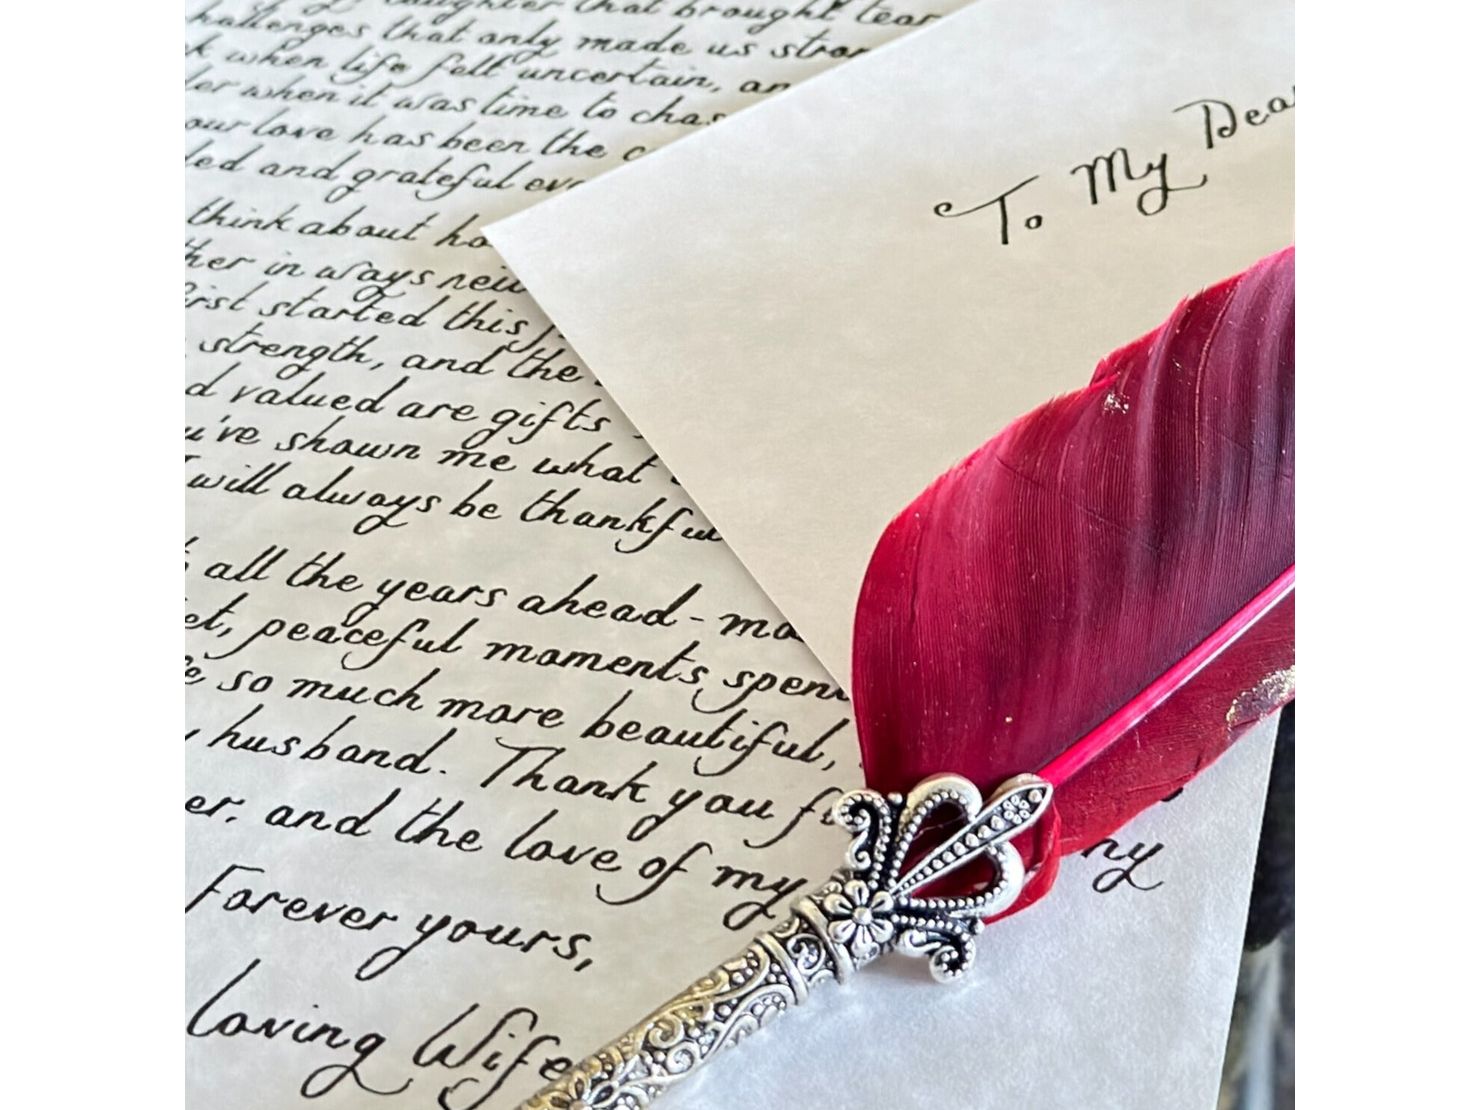 laughter that brought tear
challenges that only made us stron
when life felt uncertain, an
when it was time to chas
our love has been the
and grateful
think about ho
in ways nei
first started this
strength, and the
valued are gifts
've shown me what
will always be thankful
all the years ahead-ma
peaceful moments spen
so much more beautiful,
husband. Thank you fo
er, and the love of my
Forever yours,
Loving Wife
To My Dea
ny